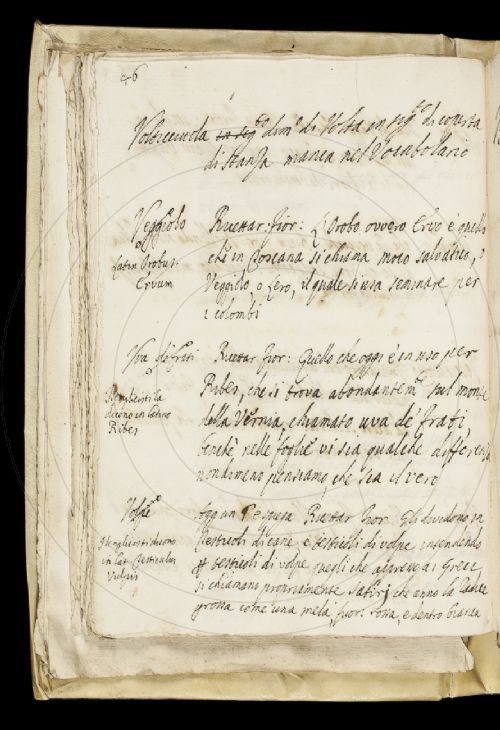 46
Volticciuola in sig.to dim.o di Volta in sig.to di coverta
di stanza manca nel Vocabolario
Veggiolo Ricettar: Fior: L'Orobo ovvero Ervo è quello
Latin Orobus. che in Toscana si chiama moco salvatico, o
Ervum Veggiolo, o Lero, il quale si usa seminare per
i colombi
Uva de frati Ricettar Fior: Quello che oggi è in uso per
Ribes, che si trova abondantem.e sul monte
dicono in latino della Vernia, chiamato uva de' frati,
Ribes benchè nelle foglie vi sia qualche differenza
nondimeno pensiamo, che sia il vero
Volpe Ricettar Fior. Gli dividono in
testicoli di cane, e testicoli di volpe, intendendo
in lat. Testiculus testicoli di volpe quegli che
Vulpis si chiamano propriamente Satirj che anno la radice
grossa come una mela, fuor: rossa, e dentro bianca